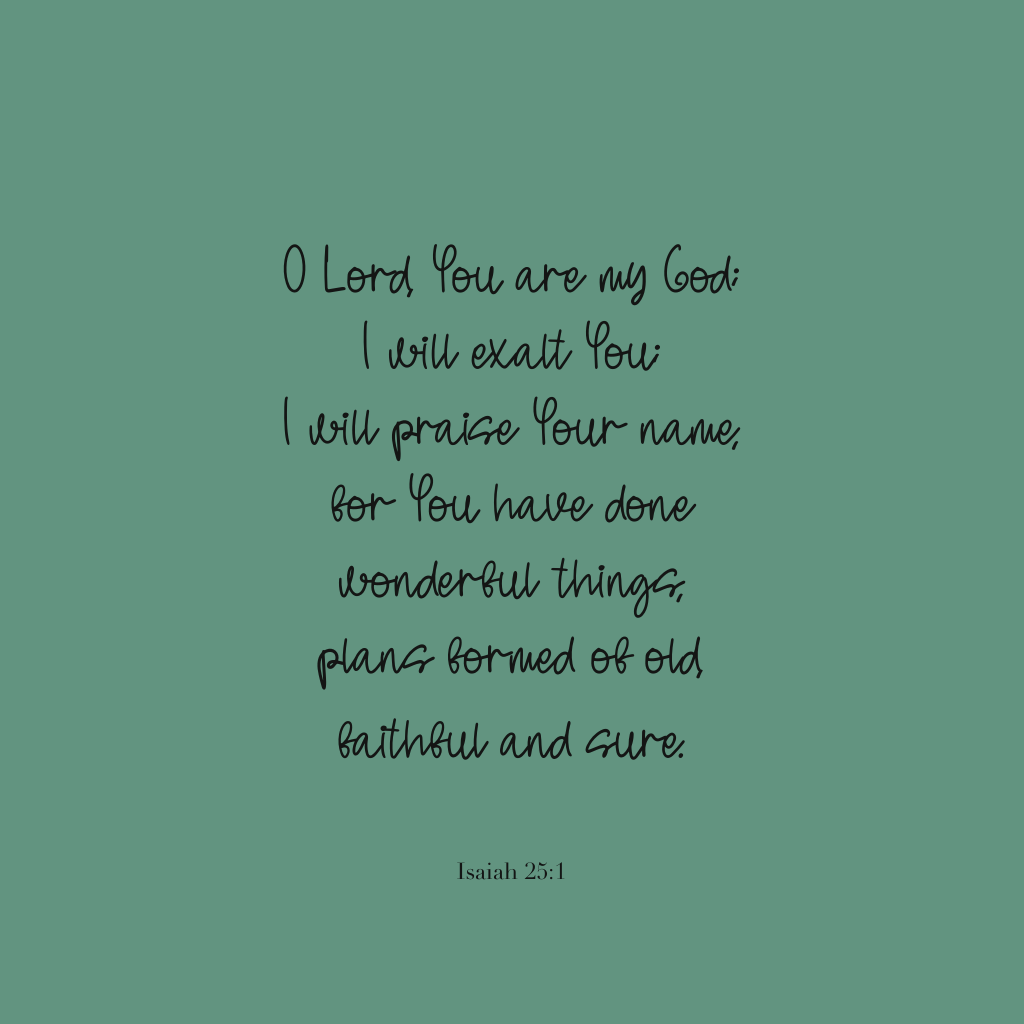 O Lord, You are my God;
I will exalt You;
I will praise Your name,
for You have done
wonderful things,
plans formed of old,
faithful and sure.
Isaiah 25:1